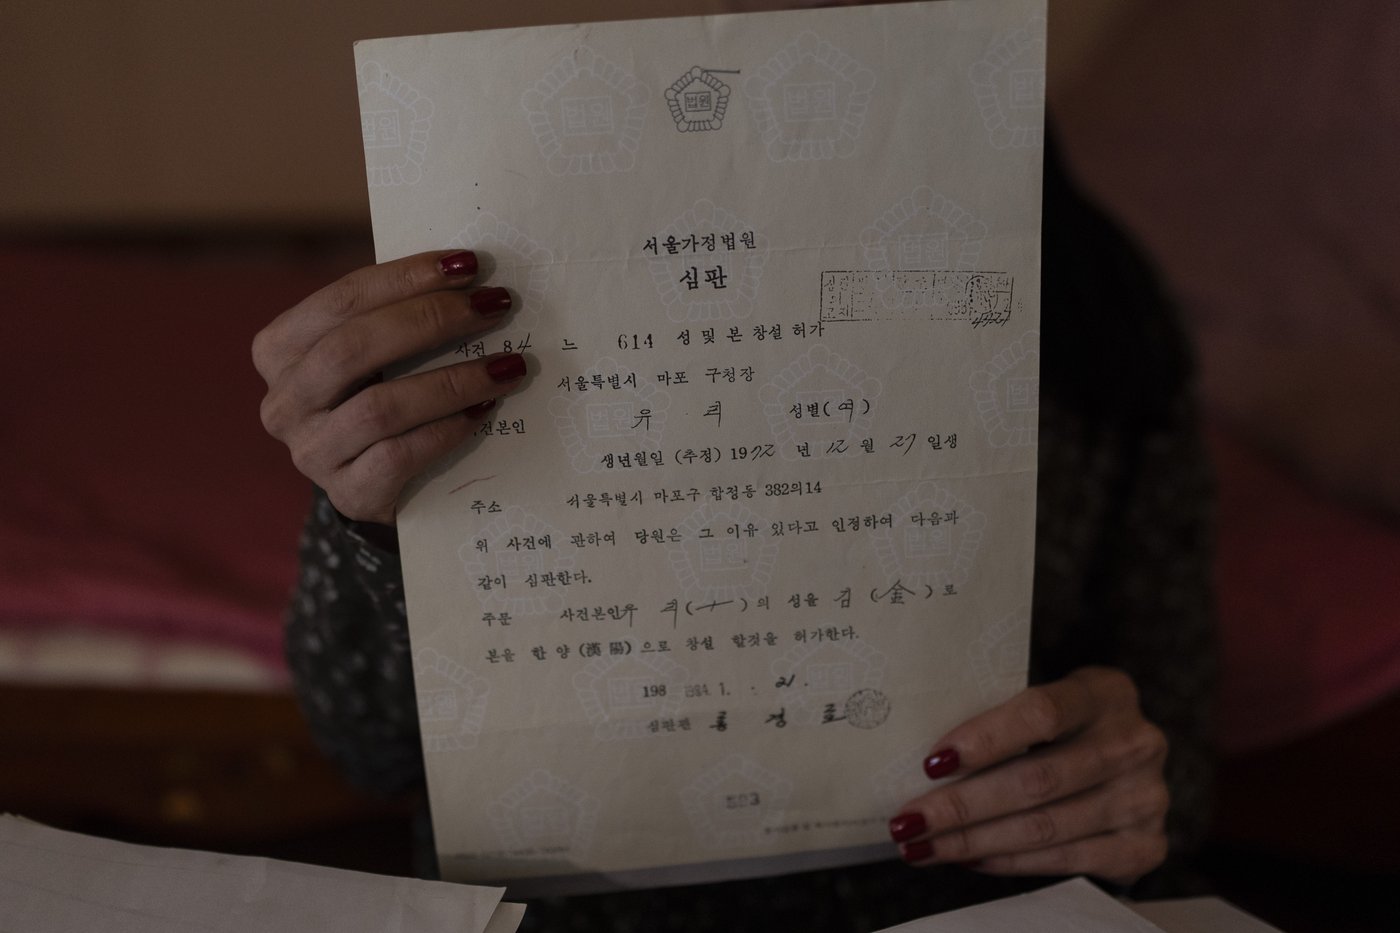 법원
서울가정법원
심판
사건 84 느 614 성 및 본 창설 허가
서울특별시 마포 구청장
건본인 유 리 성별(여)
생년월일 (추정) 1972 년 12 월 27 일생
주소 서울특별시 마포구 합정동 382의14
위 사건에 관하여 당원은 그 이유 있다고 인정하여 다음과
같이 심판한다.
주문 사건본인 유 리( )의 성을 김 (金) 로
본을 한 양 (漢陽) 으로 창설 할것을 허가한다.
198 1984. 1. 21.
심판관 홍 경
583